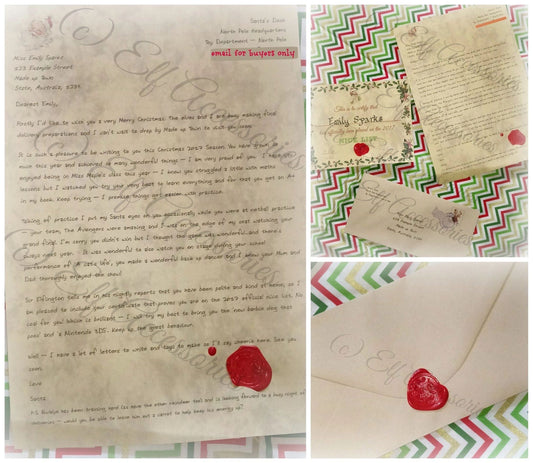 Santa's Desk
North Pole Headquarters
Toy Department – North Pole
email for buyers only
Miss Emily Sparks
123 Example Street
Made up Town
State, Australia, 1234
Dearest Emily,
Firstly I'd like to wish you a very Merry Christmas. The elves and I are busy making final
delivery preparations and I can't wait to drop by Made up Town to visit you soon.
It is such a pleasure to be writing to you this Christmas 2017 Season. You have grown so
much this year and achieved so many wonderful things – I am very proud of you. I have
enjoyed being in Miss Maple's class this year – I know you struggled a little with maths
lessons but I watched you try your very best to learn everything and for that you get an A+
in my book. Keep trying – I promise things get easier with practice.
Taking of practice I put my Santa eyes on you occasionally while you were at netball practice
your team, The Avengers were amazing and I was on the edge of my seat watching your
grand final. I'm sorry you didn't win but I thought the game was wonderful and there's
always next year. It was wonderful to see watch you on stage during your school
performance of 'A Let's life', you made a wonderful back up dancer and I know your Mum and
Dad thoroughly enjoyed the show!
Sir Elfington tells me in his nightly reports that you have been polite and kind at home, so I
am pleased to include your certificate that proves you are on the 2017 official nice list. No
coal for you! Which is brilliant – I will try my best to bring you the 'new barbie dog that
poos' and 's Nintendo 3DS. Keep up the great behaviour.
Well – I have a lot of letters to write and toys to make so I'd say cheerio here. See you
soon.
Love
Santa
P.S Rudolph has been training hard (as have the other reindeer too) and is looking forward to a busy night of
deliveries – would you be able to leave him out a carrot to help keep his energy up?
(c) Elf Accessories
This is to certify that
Emily Sparks
2017
NICE LIST
(c) Elf Accessories
(c) Elf Accessories